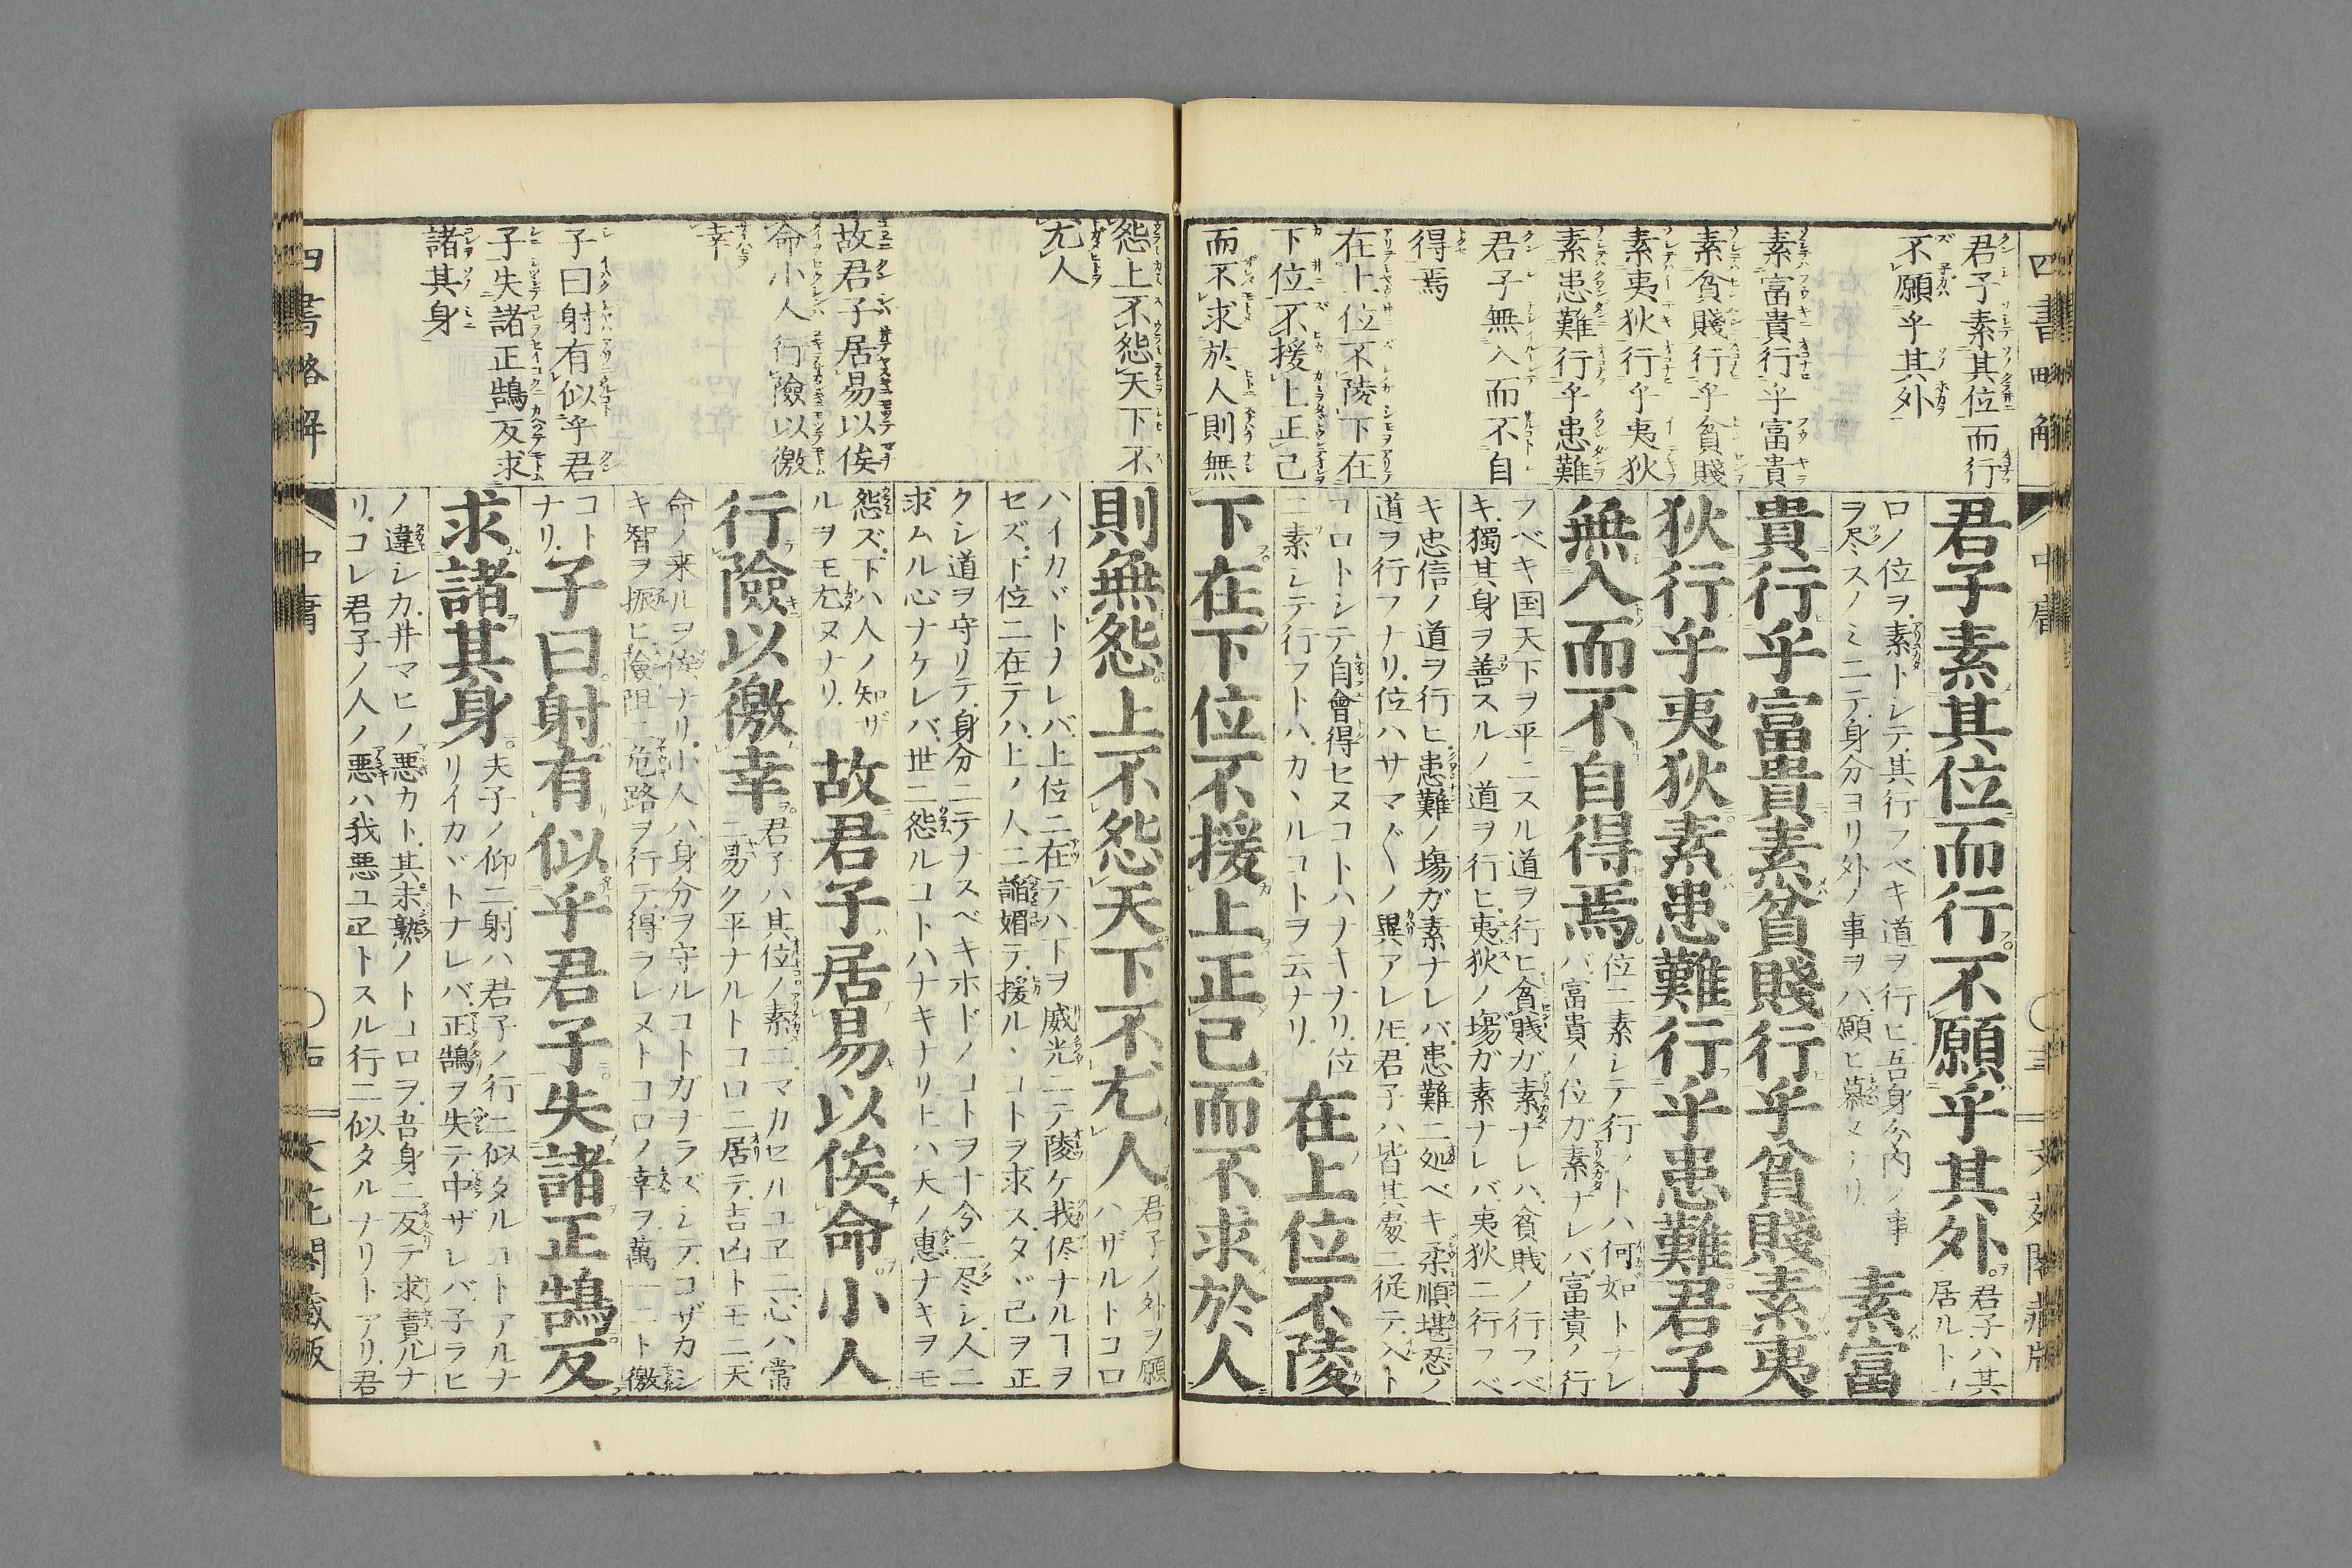 四書略解
中庸
君子素其位而行
不願乎其外
素富貴行乎富貴
素貧賤行乎貧賤
素夷狄行乎夷狄
素患難行乎患難
君子無入而不自
得焉
在上位不陵下在
下位不援上正己
而不求於人則無
君子素其位而行不願乎其外 君子ハ其
居ルトコ
ロノ位ヲ素トシテ其行フベキ道ヲ行ヒ吾身分内ノ事
ヲ尽スノミニテ身分ヨリ外ノ事ヲバ願ヒ慕ヌナリ 素富
貴行乎富貴素貧賤行乎貧賤素夷
狄行乎夷狄素患難行乎患難君子
無入而不自得焉 位ニ素シテ行フトハ何如トナレ
バ富貴ノ位ガ素ナレバ富貴ノ行
フベキ国天下ヲ平ニスル道ヲ行ヒ貧賎ガ素ナレハ貧賎ノ行フベ
キ獨其身ヲ善スルノ道ヲ行ヒ夷狄ノ塲ガ素ナレバ夷狄ニ行フベ
キ忠信ノ道ヲ行ヒ患難ノ塲ガ素ナレバ患難ニ処ベキ柔順堪忍ノ
道ヲ行フナリ位ハサマ〴〵ノ異アレ𪜈君子ハ皆其處ニ従テ入ト
コロトシテ自會得セヌコトハナキナリ位
ニ素シテ行フトハカヽルコトヲ云ナリ 在上位不陵
下在下位不援上正己而不求於人
怨上不怨天下不
尤人
故君子居易以俟
命小人行險以徼
幸
子曰射有似乎君
子失諸正鵠反求
諸其身
則無怨上不怨天下不尤人 君子ノ外ヲ願
ハザルトコロ
ハイカヾトナレバ上位ニ在テハ下ヲ威光ニテ陵ケ我侭ナルヿヲ
セズ下位ニ在テハ上ノ人ニ謟媚テ援ルヽコトヲ求スタヾ己ヲ正
クシ道ヲ守リテ身分ニテナスベキホドノコトヲ十今ニ尽シ人ニ
求ムル心ナケレバ世ニ怨ルコトハナキナリヒハ天ノ惠ナキヲモ
怨ズ下ハ人ノ知ザ
ルヲモ尤ヌナリ 故君子居易以俟命小人
行險以徼幸 君子ハ其位ノ素ニマカセルユヱニ心ハ常
ニ易ク平ナルトコロニ居テ吉凶トモニ天
命ノ来ルヲ俟ナリ小人ハ身分ヲ守ルコトガナラズシテコザカシ
キ智ヲ振ヒ險阻ニ危路ヲ行テ得ラレヌトコロノ幸ヲ萬一ニト徼
コト
ナリ 子曰射有似乎君子失諸正鵠反
求諸其身 夫子ノ仰ニ射ハ君子ノ行ニ似タルコトアルナ
リイカヾトナレバ正鵠ヲ失テ中ザレバ子ラヒ
ノ違シカ井マヒノ悪カト其未熟ノトコロヲ吾身ニ反テ求責ルナ
リコレ君子ノ人ノ悪ハ我悪ユヱトスル行ニ似タルナリトアリ君
四書略解
中庸